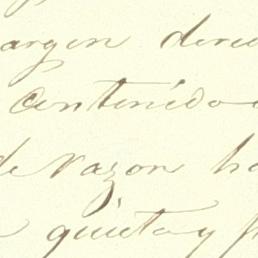 argen derec
contenido
de razon ha
quieta y p